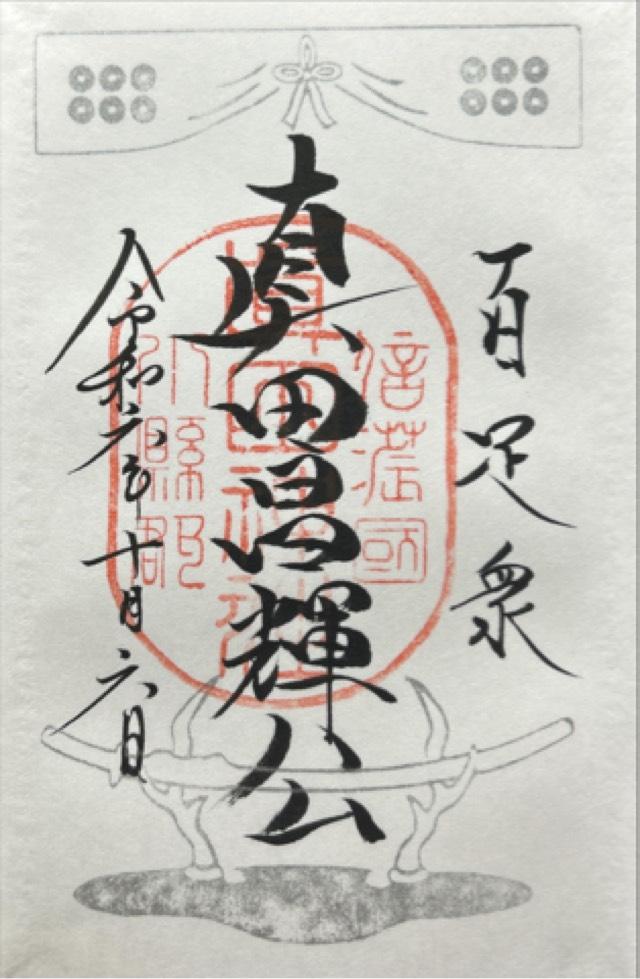 百足衆
真田昌輝公
令和六年十月六日
信濃國
真田神社
小縣郡